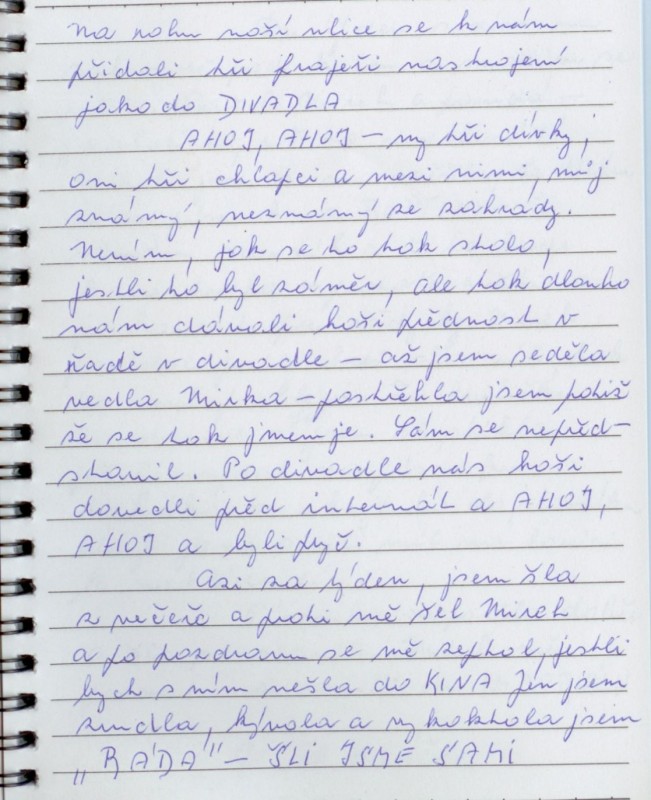 na rohu naší ulice se k nám
přidali tři frajeři nastrojení
jako do DIVADLA
AHOJ, AHOJ – my tři dívky,
oni tři chlapci a mezi nimi, můj
známý, neznámý ze zahrády.
Nevím, jak se to tak stalo,
jestli to byl záměr, ale tak dlouho
nám dávali hoši přednost v
řadě v divadle – až jsem seděla
vedla Mirka – postřehla jsem totiž
že se tak jmenuje. Sám se nepřed-
stavil. Po divadle nás hoši
dovedli před internát a AHOJ,
AHOJ a byli pryč.
Asi za týden, jsem šla
z večeře a proti mě šel Mirek
a po pozdravu se mě zeptal, jestli
bych s ním nešla do KINA Jen jsem
zrudla, kývala a vykoktala jsem
„RÁDA" – ŠLI JSME SAMI